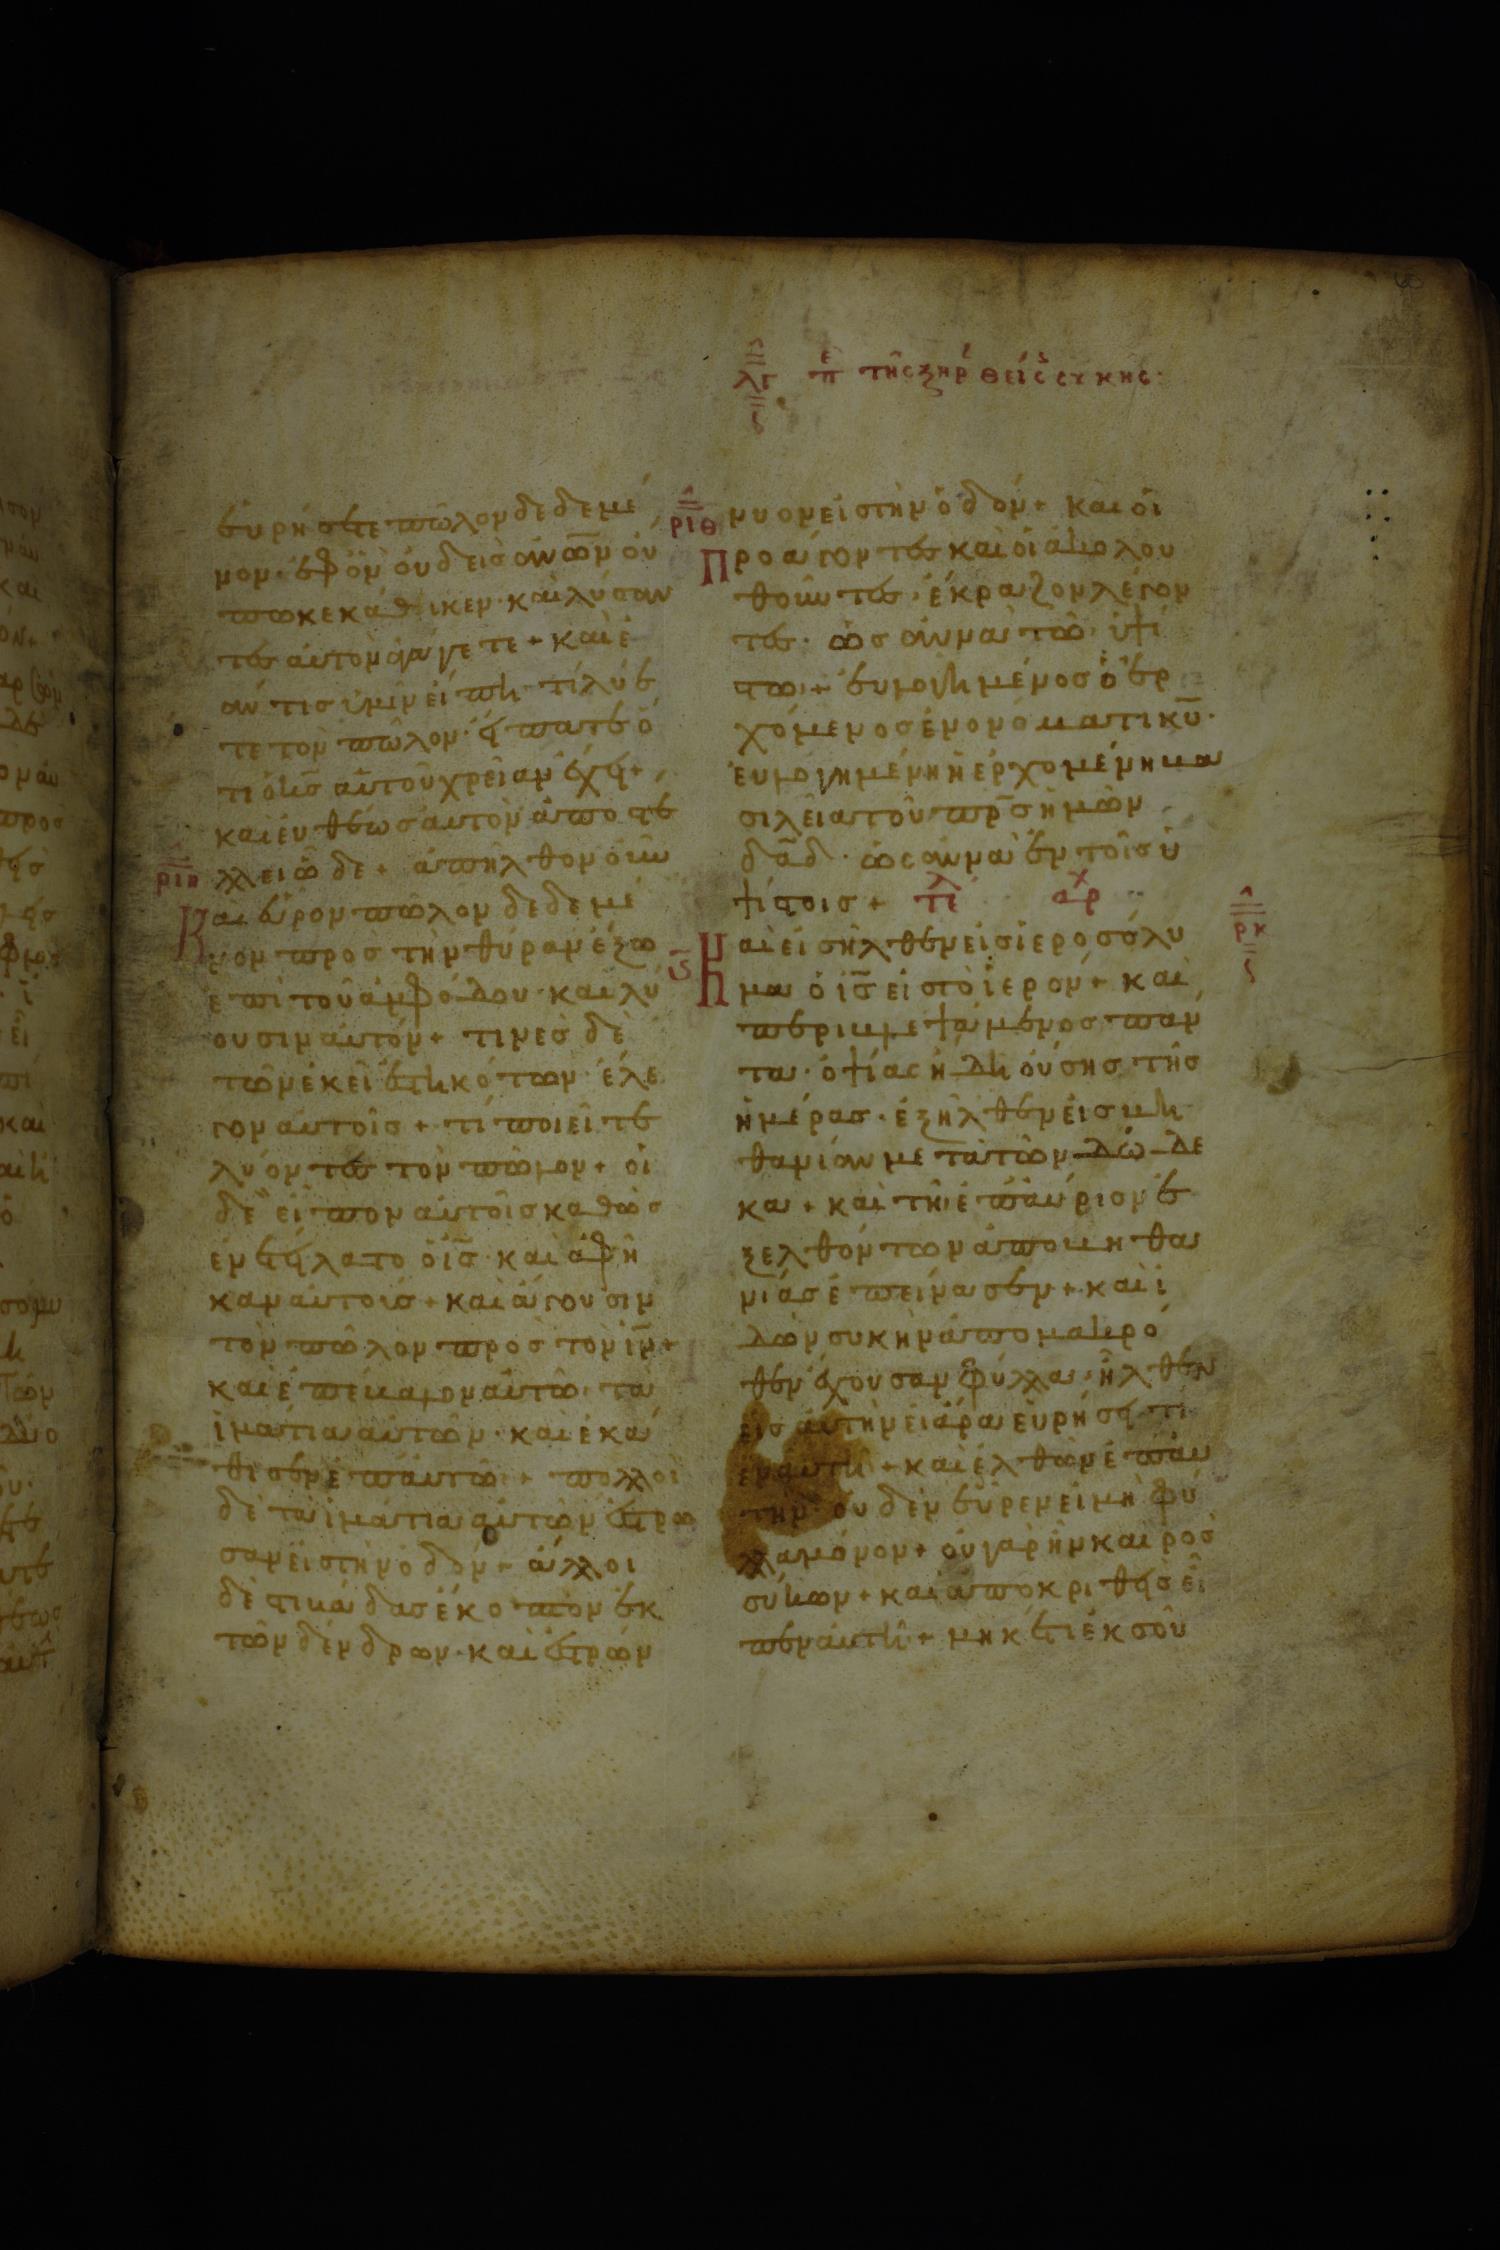 λγ ε̅π̅ τῆς ξηρ θείς συκης·
εὑρήσετε πῶλον δεδεμέ
νον· ἐφ ὃν οὐδεὶς ἀνῶ̅ν οὐ
πω κεκάθικεν· καὶ λύσαν
τες αὐτὸν ἀγάγετε + καὶ ἐ
άν τις ὑμῖν εἴπη τί λύε
τε τὸν πῶλον· εἴπατε ὅ
τι ὁ κ̅ς̅ αὐτοῦ χρείαν ἔχει +
καὶ εὐθέως αὐτὸν ἀποστέ
λλει ὧδε + ἀπῆλθον οὖν
ριη
Και εὗρον πῶλον δεδεμέ
νον πρὸς τὴν θύραν ἔξω
ἐπὶ τοῦ ἀμφόδου· καὶ λύ
ουσιν αὐτόν + τινὲς δὲ
τῶν ἐκεῖ ἑστηκότων ἔλε
γον αὐτοῖς + τί ποιεῖτε
λύοντες τὸν πῶλον + οἱ
δὲ εἶπον αὐτοῖς καθὼς
ἐνετείλατο ὁ ἰ̅ς̅· καὶ ἀφῆ
καν αὐτοὺς + καὶ ἄγουσιν
τὸν πῶλον πρὸς τὸν ἰ̅ν̅ +
καὶ ἐπέβαλον αὐτῶ τὰ
ἱμάτια αὐτῶν· καὶ ἐκά
θισεν ἐπ αὐτῶ + πολλοὶ
δὲ τὰ ἱμάτια αὐτῶν ἔστρω
σαν εἰς τὴν ὁδόν + ἄλλοι
δὲ στιβάδας ἔκοπτον ἐκ
τῶν δένδρων· καὶ ἐστρών
ριθ
νυον εἰς τὴν ὁδόν + καὶ οἱ
Προάγοντες καὶ οἱ ἀκολου
θοῦντες, ἔκραζον λέγον
τες· ὡσαννὰ τῶ ὑψί
στω + εὐλογημένος ὁ ἐρ
χόμενος ἐν ὀνόματι κ̅υ̅·
εὐλογημένη ἡ ἐρχομένη βα
σιλεία τοῦ π̅ρ̅ς̅ ἡμῶν
δ̅α̅δ̅· ὡσαννὰ ἐν τοῖς ὑ
ψίστοις + τέλ αρχ
ρκ
Καὶ εἰσῆλθεν εἰς ἱεροσόλυ
μα ὁ ἰ̅ς̅ εἰς τὸ ἱερόν + καὶ
περιβλεψάμενος πάν
τα· ὀψίας ἤδη οὔσης τῆς
ἡμέρας· ἐξῆλθεν εἰς βη
θανίαν μετὰ τῶν δώδε
κα + καὶ τῆ ἐπαύριον ἐ
ξελθόντων ἀπὸ βηθα
νίας ἐπείνασεν + καὶ ἰ
δὼν συκὴν ἀπὸ μακρό
θεν ἔχουσαν φύλλα, ἦλθεν
εἰς αὐτὴν εἰ ἄρα εὑρήσει τι
ἐν αὐτῆ + καὶ ἐλθὼν ἐπ αὐ
τὴν· οὐδὲν εὗρεν εἰ μὴ φύ
λλα μόνον + οὐ γὰρ ἦν καιρὸς
σύκων + καὶ ἀποκριθεὶς εἶ
πεν αὐτῆ + μηκέτι ἐκ σοῦ